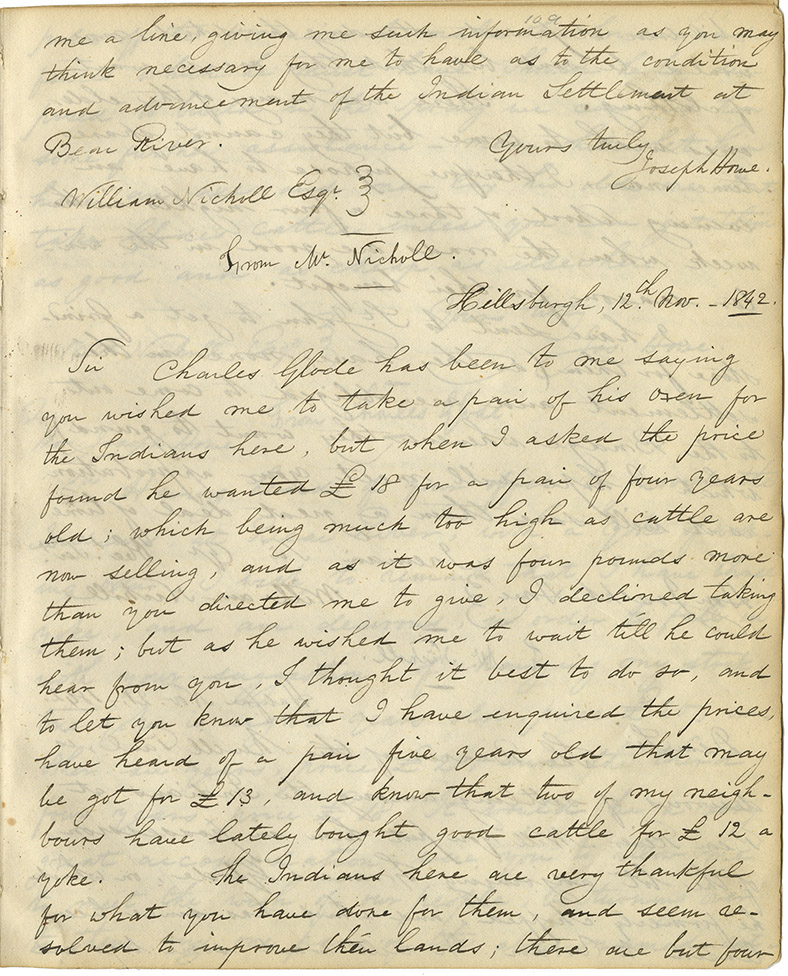 109
me a line, giving me such information as you may
think necessary for me to have as to the condition
and advancement of the Indian Settlement at
Bear River.
Yours truly
Joseph Howe.
William Nicholl Esqr.
From Mr. Nicholl.
Hillsburgh, 12th Nov. - 1842.
Sir Charles Glode has been to me saying
you wished me to take a pair of his oxen for
the Indians here, but when I asked the price
found he wanted £ 18 for a pair of four years
old; which being much too high as cattle are
now selling, and as it was four pounds more
than you directed me to give, I declined taking
them; but as he wished me to wait till he could
hear from you, I thought it best to do so, and
to let you know that I have enquired the prices,
have heard of a pair five years old that may
be got for £ 13, and know that two of my neigh-
bours have lately bought good cattle for £ 12 a
yoke. The Indians here are very thankful
for what you have done for them, and seem re-
solved to improve their lands; there are but four